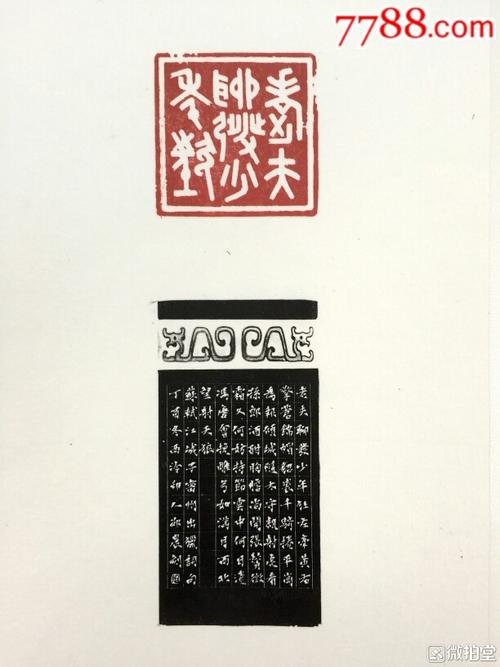 7788.com
老夫
聊發少
年狂
老夫聊發少年狂左牽黃右
擎蒼錦帽貂裘千騎捲平岡
為報傾城隨太守親射虎看
孫郎酒酣胸膽尚開張鬢微
霜又何妨持節雲中何日遣
馮唐會挽雕弓如滿月西北
望射天狼
蘇軾江城子密州出獵詞句
丁酉冬西泠印人晨刻
微拍堂